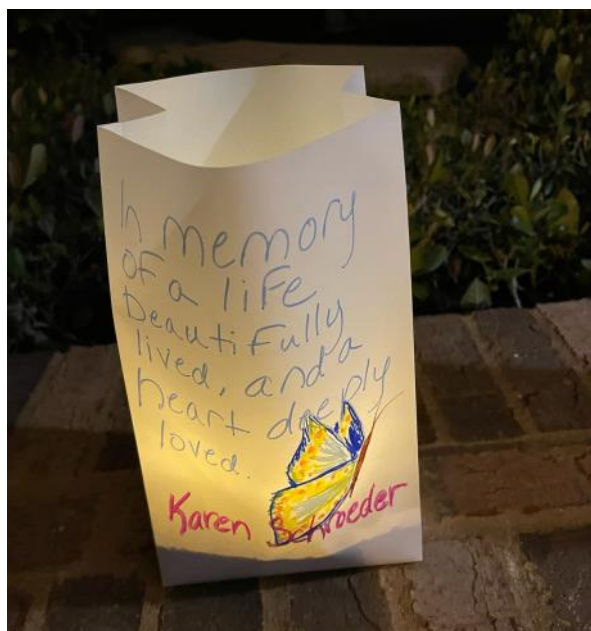 In memory
of a life
beautifully
lived, and a
heart deeply
loved.
Karen Schroeder